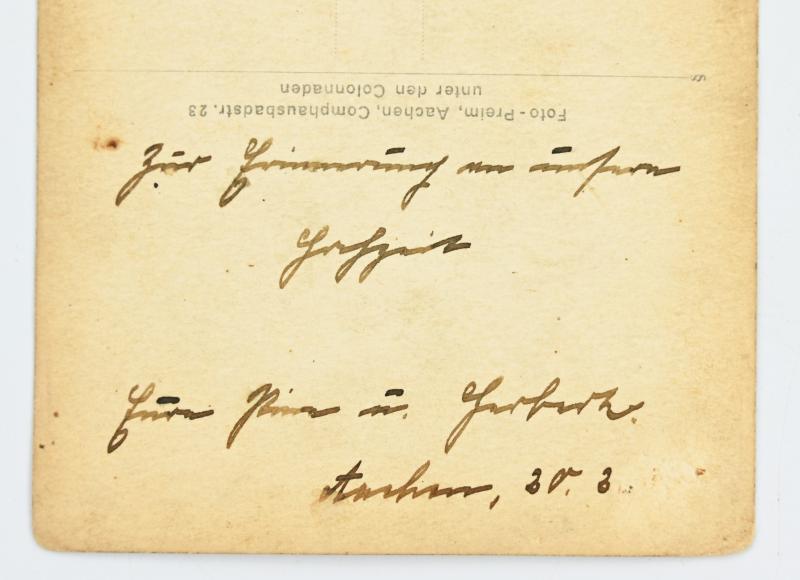 Foto-Preim, Aachen, Comphausbadstr. 23
unter den Colonnaden
Zur Erinnerung an unsere
Hochzeit
Eure u. Herbert.
Aachen, 20. 2